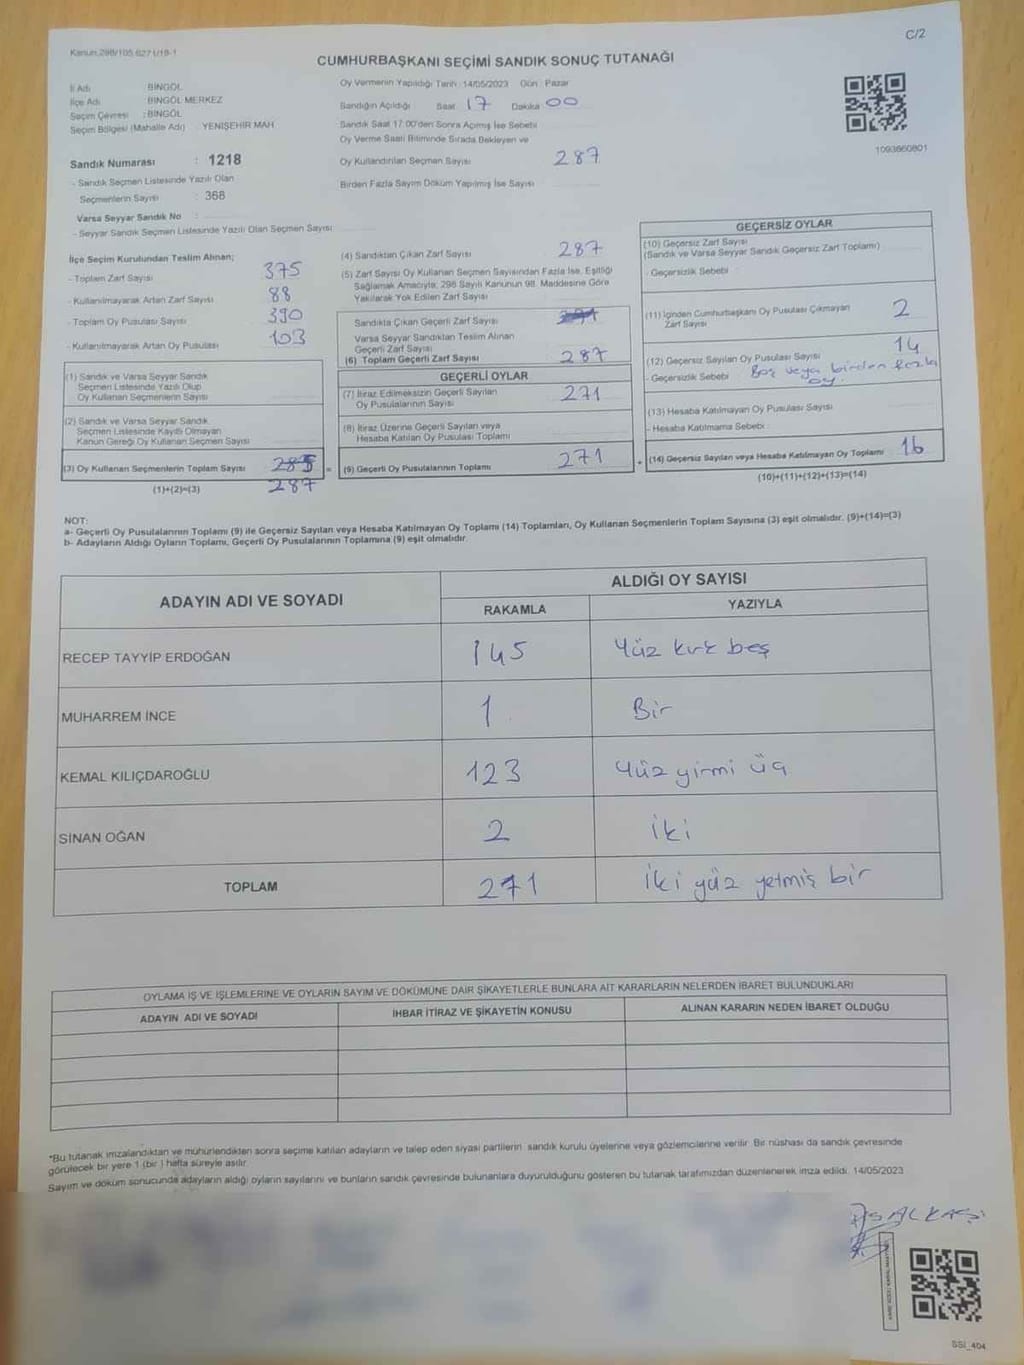 Kanun,298/105 627 1/18-1
C/2
CUMHURBAŞKANI SEÇİMİ SANDIK SONUÇ TUTANAĞI
İl Adı BİNGÖL
İlçe Adı BİNGÖL MERKEZ
Seçim Çevresi : BİNGÖL
Seçim Bölgesi (Mahalle Adı) : YENİŞEHİR MAH.
Sandık Numarası : 1218
- Sandık Seçmen Listesinde Yazılı Olan
Seçmenlerin Sayısı : 368
Varsa Seyyar Sandık No :
- Seyyar Sandık Seçmen Listesinde Yazılı Olan Seçmen Sayısı
Oy Vermenin Yapıldığı Tarih : 14/05/2023 Gün : Pazar
Sandığın Açıldığı Saat 17 Dakika 00
Sandık Saat 17:00'den Sonra Açılmış İse Sebebi
Oy Verme Saati Bitiminde Sırada Bekleyen ve
Oy Kullandırılan Seçmen Sayısı 287
Birden Fazla Sayım Döküm Yapılmış İse Sayısı
1093860801
İlçe Seçim Kurulundan Teslim Alınan;
- Toplam Zarf Sayısı 375
- Kullanılmayarak Artan Zarf Sayısı 88
- Toplam Oy Pusulası Sayısı 390
- Kullanılmayarak Artan Oy Pusulası 103
(1) Sandık ve Varsa Seyyar Sandık
Seçmen Listesinde Yazılı Olup
Oy Kullanan Seçmenlerin Sayısı
(2) Sandık ve Varsa Seyyar Sandık
Seçmen Listesinde Kayıtlı Olmayan
Kanun Gereği Oy Kullanan Seçmen Sayısı
(3) Oy Kullanan Seçmenlerin Toplam Sayısı 285 =
(1)+(2)=(3) 287
(4) Sandıktan Çıkan Zarf Sayısı 287
(5) Zarf Sayısı Oy Kullanan Seçmen Sayısından Fazla İse, Eşitliği
Sağlamak Amacıyla; 298 Sayılı Kanunun 98. Maddesine Göre
Yakılarak Yok Edilen Zarf Sayısı
Sandıkta Çıkan Geçerli Zarf Sayısı
Varsa Seyyar Sandıktan Teslim Alınan
Geçerli Zarf Sayısı
(6) Toplam Geçerli Zarf Sayısı 287
GEÇERLİ OYLAR
(7) İtiraz Edilmeksizin Geçerli Sayılan
Oy Pusulalarının Sayısı 271
(8) İtiraz Üzerine Geçerli Sayılan veya
Hesaba Katılan Oy Pusulası Toplamı
(9) Geçerli Oy Pusulalarının Toplamı 271 +
GEÇERSİZ OYLAR
(10) Geçersiz Zarf Sayısı
(Sandık ve Varsa Seyyar Sandık Geçersiz Zarf Toplamı)
- Geçersizlik Sebebi
(11) İçinden Cumhurbaşkanı Oy Pusulası Çıkmayan
Zarf Sayısı 2
(12) Geçersiz Sayılan Oy Pusulası Sayısı 14
- Geçersizlik Sebebi Boş veya birden fazla
oy.
(13) Hesaba Katılmayan Oy Pusulası Sayısı
- Hesaba Katılmama Sebebi
(14) Geçersiz Sayılan veya Hesaba Katılmayan Oy Toplamı 16
(10)+(11)+(12)+(13)=(14)
NOT:
a- Geçerli Oy Pusulalarının Toplamı (9) ile Geçersiz Sayılan veya Hesaba Katılmayan Oy Toplamı (14) Toplamları, Oy Kullanan Seçmenlerin Toplam Sayısına (3) eşit olmalıdır. (9)+(14)=(3)
b- Adayların Aldığı Oyların Toplamı, Geçerli Oy Pusulalarının Toplamına (9) eşit olmalıdır.
ADAYIN ADI VE SOYADI
ALDIĞI OY SAYISI
RAKAMLA YAZIYLA
RECEP TAYYİP ERDOĞAN 145 Yüz kırk beş
MUHARREM İNCE 1 Bir
KEMAL KILIÇDAROĞLU 123 Yüz yirmi üç
SİNAN OĞAN 2 iki
TOPLAM 271 iki yüz yetmiş bir
OYLAMA İŞ VE İŞLEMLERİNE VE OYLARIN SAYIM VE DÖKÜMÜNE DAİR ŞİKAYETLERLE BUNLARA AİT KARARLARIN NELERDEN İBARET BULUNDUKLARI
ADAYIN ADI VE SOYADI İHBAR İTİRAZ VE ŞİKAYETİN KONUSU ALINAN KARARIN NEDEN İBARET OLDUĞU
*Bu tutanak imzalandıktan ve mühürlendikten sonra seçime katılan adayların ve talep eden siyasi partilerin sandık kurulu üyelerine veya gözlemcilerine verilir. Bir nüshası da sandık çevresinde
görülecek bir yere 1 (bir ) hafta süreyle asılır.
Sayım ve döküm sonucunda adayların aldığı oyların sayılarını ve bunların sandık çevresinde bulunanlara duyurulduğunu gösteren bu tutanak tarafımızdan düzenlenerek imza edildi. 14/05/2023
SSİ_404